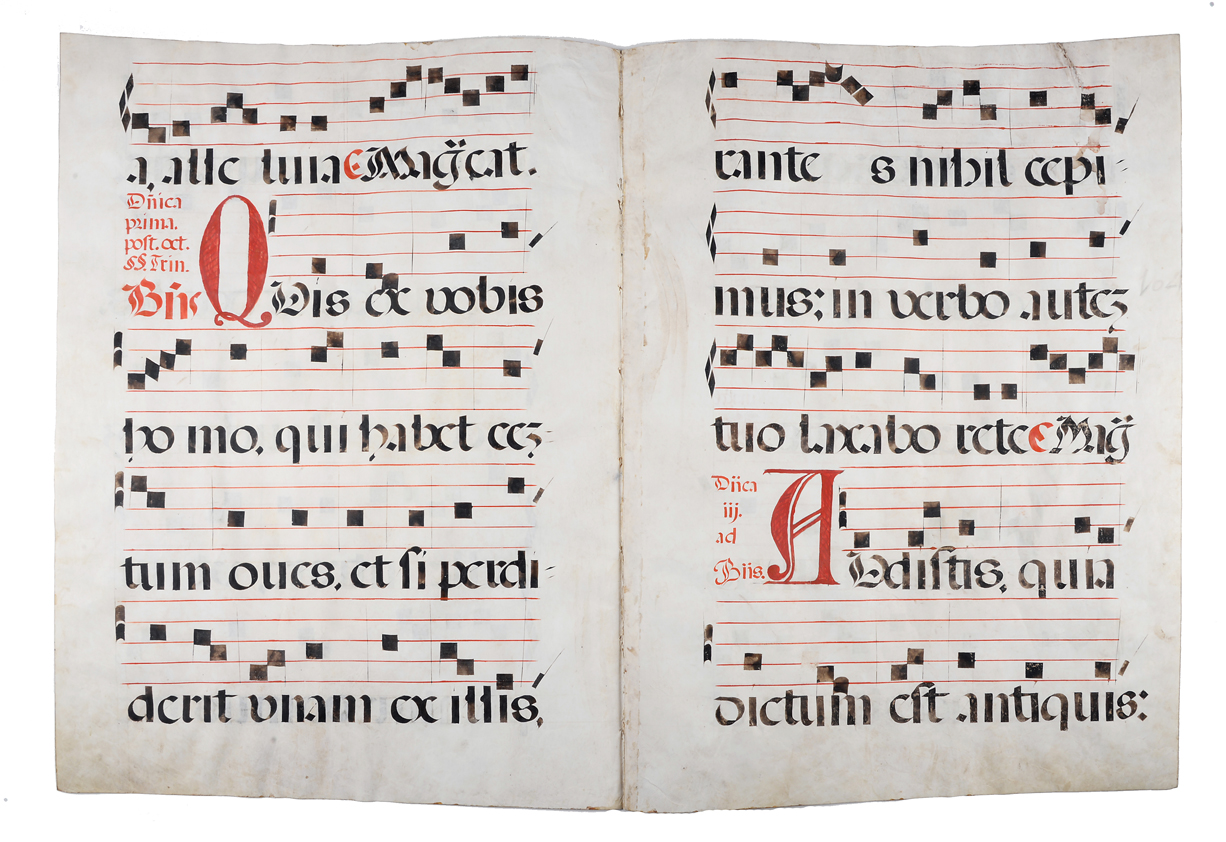 a, alle luia E Mag̃cat.
Dñica
prima.
post. oct.
SS. Trin.
Bñs QVis ex vobis
ho mo, qui habet cez-
tum oues, et si perdi-
derit vnam ex illis,
rante s nihil cepi-
mus; in verbo autez
tuo laxabo rete E Mag̃
Dñica
iij.
ad
Bñs. AVdistis, quia
dictum est antiquis: